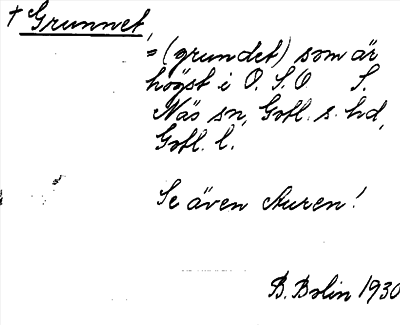 † Grunnet,
= (grundet) som är
högst i O. S. O. S.
Näs sn, Gotl. s. hd,
Gotl. l.
Se även Auren!
B. Bolin 1930